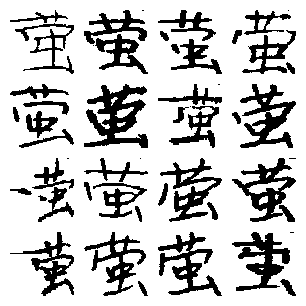 萤萤萤萤
萤萤萤萤
萤萤萤萤
萤萤萤萤